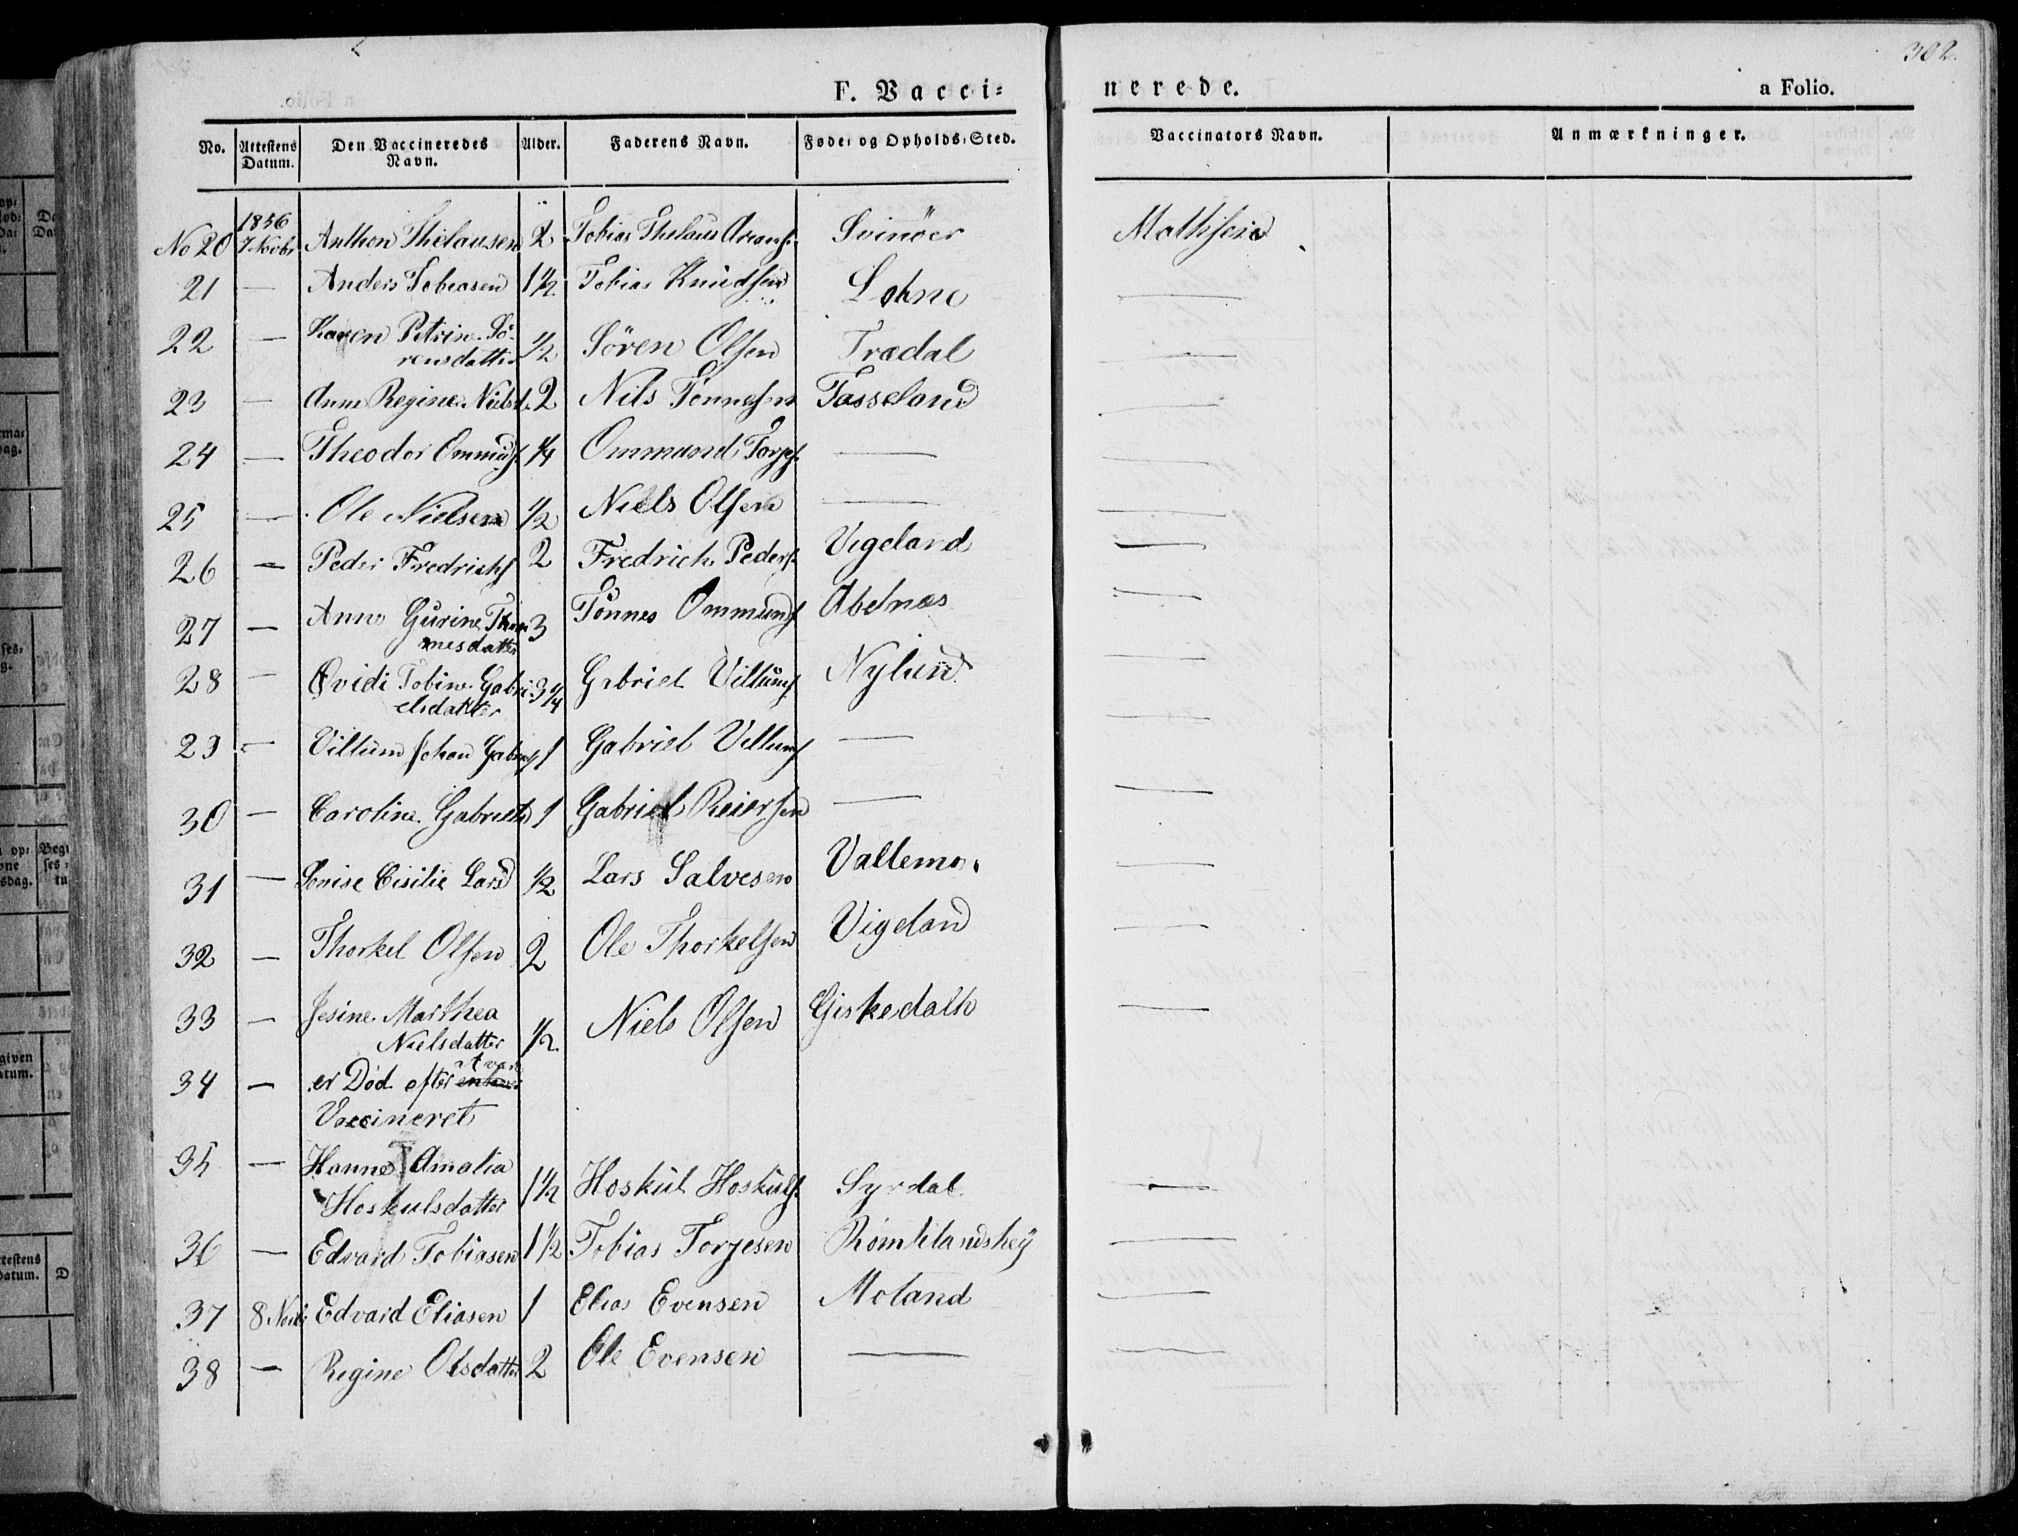 302.
F. Vacci= nerede. a Folio.
No. Attestens Datum. Den Vaccineredes Navn. Alder. Faderens Navn. Føde- og Opholds-Sted. Vaccinators Navn. Anmærkninger.
1856
No 20 7 Novbr Anthon Thelausen 2 Tobias Thelaus Svinöer Mathisen
21 — Anders Tobiasen 1½ Tobias Knudsen Lohne —
22 — Karen Petrine Sö-
rensdatter ½ Sören Olsen Tredal —
23 — Anne Regine Nielsd. 2 Nils Tönnesen Tasseland —
24 — Theodor Ommunds ¼ Ommund Torjes — —
25 — Ole Nielsen ½ Niels Olsen — —
26 — Peder Fredrichs 2 Fredrich Peders Vigeland —
27 — Anne Gurine Thön-
nesdatter 3 Tönnes Ommunds Abelnæs —
28 — Ovidi Tobine Gabri-
elsdatter 3¼ Gabriel Villums Nylund —
29 — Villum Johan Gabriels 1 Gabriel Villums — —
30 — Caroline Gabriels 1 Gabriel Reiersen — —
31 — Lovise Cisilie Larsd ½ Lars Salvesen Vallemo —
32 — Thorkel Olsen 2 Ole Thorkelsen Vigeland —
33 — Jesine Marthea
Nielsdatter ½ Niels Olsen Giskedalh —
34 — er Död efter at være
Vaccineret
35 — Hanne Amalia
Hoskulsdatter 1½ Hoskul Hoskuls Syrdal —
36 — Edvard Tobiasen 1½ Tobias Torjesen Römtlandshej —
37 8 Novbr Edvard Eliasen 1 Elias Evensen Moland —
38 — Regine Olsdatter 2 Ole Evensen — —